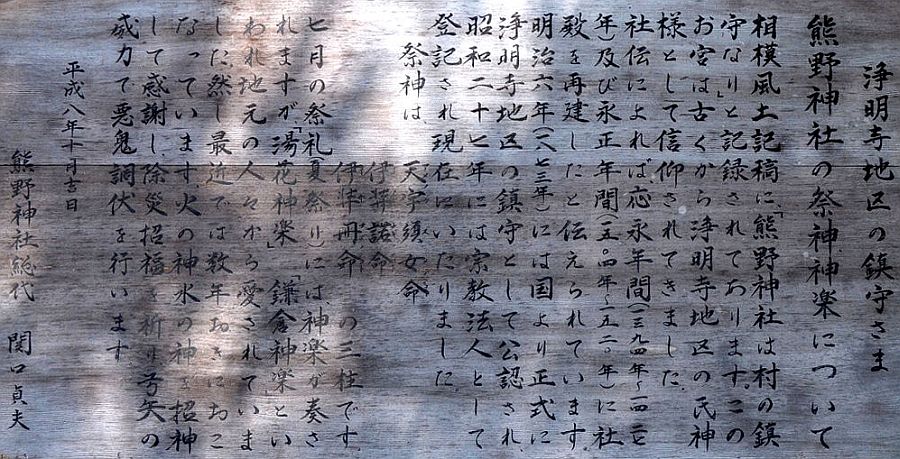 浄明寺地区の鎮守さま
熊野神社の祭神神楽について
相模風土記稿に「熊野神社は村の鎮
守なり」と記録されております。この
お宮は古くから浄明寺地区の氏神
様として信仰されてきました。
社伝によれば応永年間(一三九四年〜一四二
年及び永正年間(一五〇四年〜一五二〇年)に社
殿を再建したと伝えられています
明治六年(一八七三年)には国より正式に
浄明寺地区の鎮守として公認され
昭和二十七年には宗教法人として
登記され現在にいたりました。
祭神は、天宇須女命
伊弉諾命
伊弉冊命の三柱です。
七月の祭礼(夏祭り)には、神楽が奏さ
れますが、「湯花神楽」「鎌倉神楽」とい
われ地元の人々から愛されていま
した然し最近では数年おきにおこ
なっています、火の神水の神を招神
して感謝し除災招福を祈り弓矢の
威力で悪鬼調伏を行います
平成八年十月吉日
熊野神社総代 関口貞夫